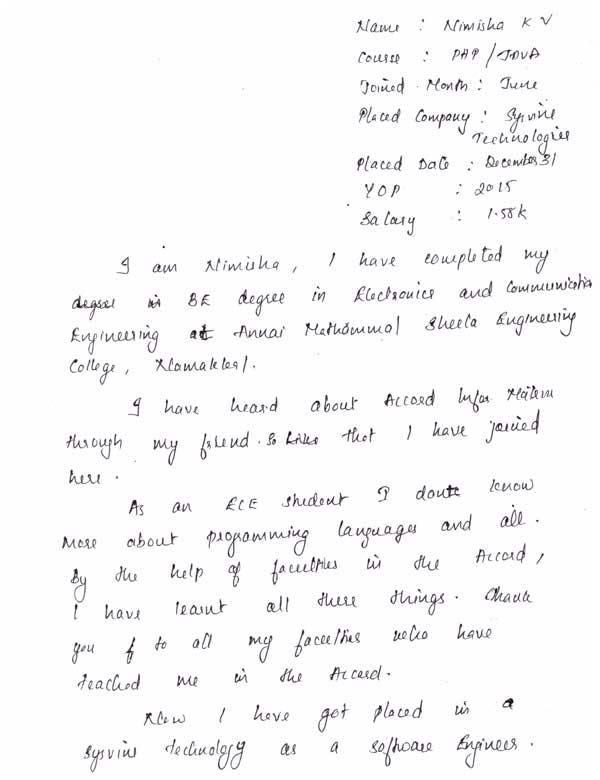 Name : Nimisha K V
Course : PHP / JAVA
Joined Month : June
Placed Company : Sysvine
Technologies
Placed Date : December 31
YOP : 2015
Salary : 1.58k
I am Nimisha, I have completed my
degree in BE degree in Electronics and Communication
Engineering at Annai Mathammal Sheela Engineering
College, Namakkal.
I have heard about Accord Infor Matrix
through my friend. So that I have joined
here.
As an ECE student I dont know
More about programming languages and all.
By the help of faculties in the Accord,
I have learnt all these things. Thank
you to all my faculties who have
teached me in the Accord.
Now I have got placed in a
Sysvine technology as a Software Engineer.